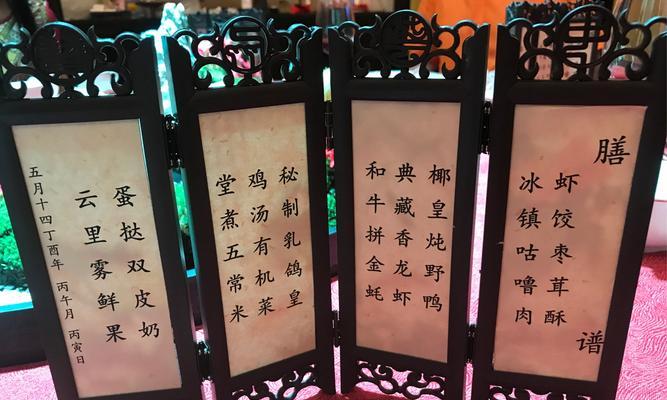 膳谱
虾饺枣茸酥
冰镇咕噜肉
椰皇炖野鸭
典藏香龙虾
和牛拼金蚝
秘制乳鸽皇
鸡汤有机菜
堂煮五常米
蛋挞双皮奶
云里雾鲜果
五月十四丁酉年 丙午月 丙寅日